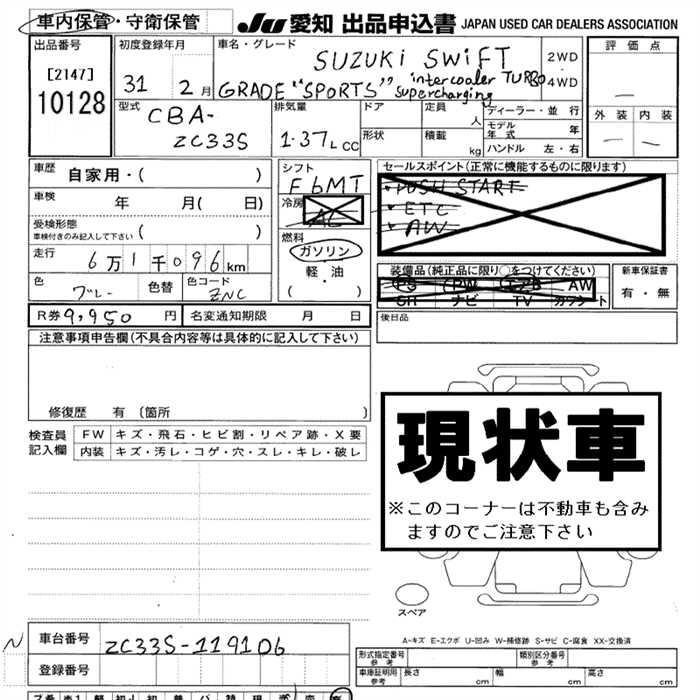 車内保管・守衛保管 JU 愛知 出品申込書 JAPAN USED CAR DEALERS ASSOCIATION
出品番号 初度登録年月 車名・グレード
[2147] 10128
31 2月
SUZUKI SWiFT
GRADE "SPORTS" intercooler TURBO
supercharging
2WD
・
4WD
評価点
—
外装 内装
— —
型式 CBA-
ZC33S
排気量 1.37L CC
ドア 定員 人
形状 積載 kg
ディーラー・並行
モデル年式 年
ハンドル 左・右
車歴 自家用・( )
車検 年 月( 日)
受検形態
車検付きのみ記入して下さい ( )
走行 6万1千096km
色 ブルー 色替 色コード ZNC
シフト
F6MT
冷房
AC
燃料
ガソリン
軽・油
( ・ )
セールスポイント(正常に機能するものに限ります)
・PUSH START
・ETC
・AW
装備品(純正品に限り○をつけてください)
PS PW エアB AW
SH ナビ TV カワシート
新車保証書
有・無
R券 9,950 円 名変通知期限 月 日
後日品
注意事項申告欄(不具合内容等は具体的に記入して下さい)
修復歴 有 (箇所 )
検査員
記入欄
FW キズ・飛石・ヒビ割・リペア跡・X要
内装 キズ・汚レ・コゲ・穴・スレ・キレ・破レ
現状車
※このコーナーは不動車も含み
ますのでご注意下さい
スペア
A-キズ E-エクボ U-凹み W-補修跡 S-サビ C-腐食 XX-交換済
車台番号 ZC33S-119106
登録番号
形式指定番号
参考
類別区分番号
参考
車庫証明用
参考
長さ cm 幅 cm 高さ cm